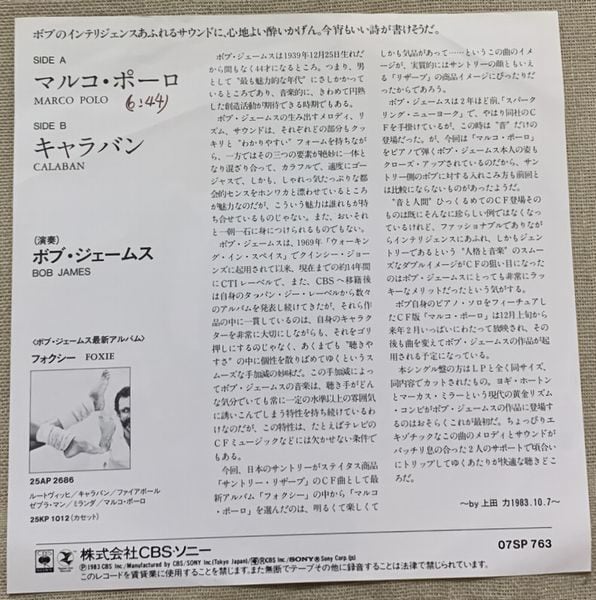 ボブのインテリジェンスあふれるサウンドに、心地よい酔いかげん。今宵もいい詩が書けそうだ。
SIDE A
マルコ・ポーロ
MARCO POLO
(6:44)
SIDE B
キャラバン
CALABAN
〈演奏〉
ボブ・ジェームス
BOB JAMES
〈ボブ・ジェームス最新アルバム〉
フォクシー FOXIE
25AP 2686
ルートヴィッヒ/キャラバン/ファイアボール
ゼブラ・マン/ミランダ/マルコ・ポーロ
25KP 1012(カセット)
ボブ・ジェームスは1939年12月25日生れだ
から間もなく44才になるところ。つまり、男
として“最も魅力的な年代”にさしかかって
いるところであり、音楽的に、きわめて円熟
した創造活動が期待できる時期でもある。
ボブ・ジェームスの生み出すメロディ、リ
ズム、サウンドは、それぞれどの部分もクッ
キリと“わかりやすい”フォームを持ちなが
ら、一方ではその三つの要素が絶妙に一体と
なり混ざり合って、カラフルで、適度にゴー
ジャスで、しかも、しゃれっ気たっぷりな都
会的センスをホンワカと漂わせているところ
が魅力なのだが、こういう魅力は誰れもが持
ち合せているものじゃない。また、おいそれ
と一朝一石に身につけられるものでもない。
ボブ・ジェームスは、1969年「ウォーキン
グ・イン・スペイス」でクインシー・ジョー
ンズに起用されて以来、現在までの約14年間
にCTIレーベルで、また、CBSへ移籍後
は自身のタッパン・ジー・レーベルから数々
のアルバムを発表し続けてきたが、それら作
品の中に一貫しているのは、自身のキャラク
ターを非常に大切にしながらも、それをゴリ
押しにするのじゃなく、あくまでも“聴きや
すさ”の中に個性を散りばめてゆくというス
ムーズな手加減の妙味だ。この手加減によっ
てボブ・ジェームスの音楽は、聴き手がどん
な気分でいても常に一定の水準以上の雰囲気
に誘いこんでしまう特性を持ち続けているわ
けなのだが、この特性は、たとえばテレビの
CFミュージックなどには欠かせない条件で
もある。
今回、日本のサントリーがステイタス商品
「サントリー・リザーブ」のCF曲として最
新アルバム「フォクシー」の中から「マルコ
・ポーロ」を選んだのは、明るくて楽しくて
しかも気品があって……というこの曲のイメ
ージが、実質的にはサントリーの顔ともいえ
る「リザーブ」の商品イメージにぴったりだ
ったからであろう。
ボブ・ジェームスは2年ほど前、「スパーク
リング・ニューヨーク」で、やはり同社のC
Fを手掛けているが、この時は“音”だけの
登場だった。が、今回は「マルコ・ポーロ」
をピアノで弾くボブ・ジェームス本人の姿も
クローズ・アップされているのだから、サント
リー側のボブに対する入れこみ方も前回と
は比較にならないものがあったようだ。
“音と人間”ひっくるめてのCF登場その
ものは既にそんなに珍らしい例ではなくなっ
ているけれど、ファッショナブルでありなが
らインテリジェンスにあふれ、しかもジェン
トリーであるという“人格と音楽”のスムー
ズなダブルイメージがCFの狙い目になった
のはボブ・ジェームスにとっても非常にラッ
キーなメリットだったという気がする。
ボブ自身のピアノ・ソロをフィーチュアし
たCF版「マルコ・ポーロ」は12月上旬から
来年2月いっぱいにわたって放映され、その
後も曲を変えてボブ・ジェームスの作品が起
用される予定になっている。
本シングル盤の方はLPと全く同サイズ、
同内容でカットされたもの。ヨギ・ホートン
とマーカス・ミラーという現代の黄金リズム
・コンビがボブ・ジェームスの作品に登場す
るのはおそらくこれが最初だ。ちょっぴりエ
キゾチックなこの曲のメロディとサウンドが
バッチリ息の合った2人のサポートで頃合い
にトリップしてゆくあたりが快適な聴きどこ
ろだ。
〜by 上田 力1983.10.7〜
CBS SONY
株式会社CBS・ソニー
Ⓟ1983 CBS Inc/Manufactured by CBS/SONY Inc(Tokyo Japan)/CBS Inc/SONY Sony Corp.(Js)
このレコードを賃貸業に使用することを禁じます。また無断でテープその他に録音することは法律で禁じられています。
07SP 763